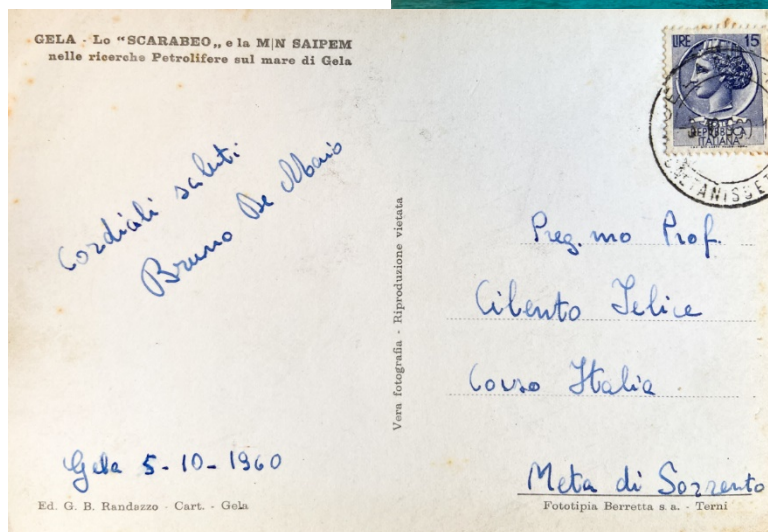 GELA - Lo "SCARABEO„ e la M|N SAIPEM
nelle ricerche Petrolifere sul mare di Gela
LIRE 15
REPUBBLICA
ITALIANA
Cordiali saluti
Bruno De Maio
Vera fotografia - Riproduzione vietata
Preg.mo Prof.
Cilento Felice
Corso Italia
Meta di Sorrento
Gela 5-10-1960
Ed. G. B. Randazzo - Cart. - Gela
Fototipia Berretta s.a. - Terni